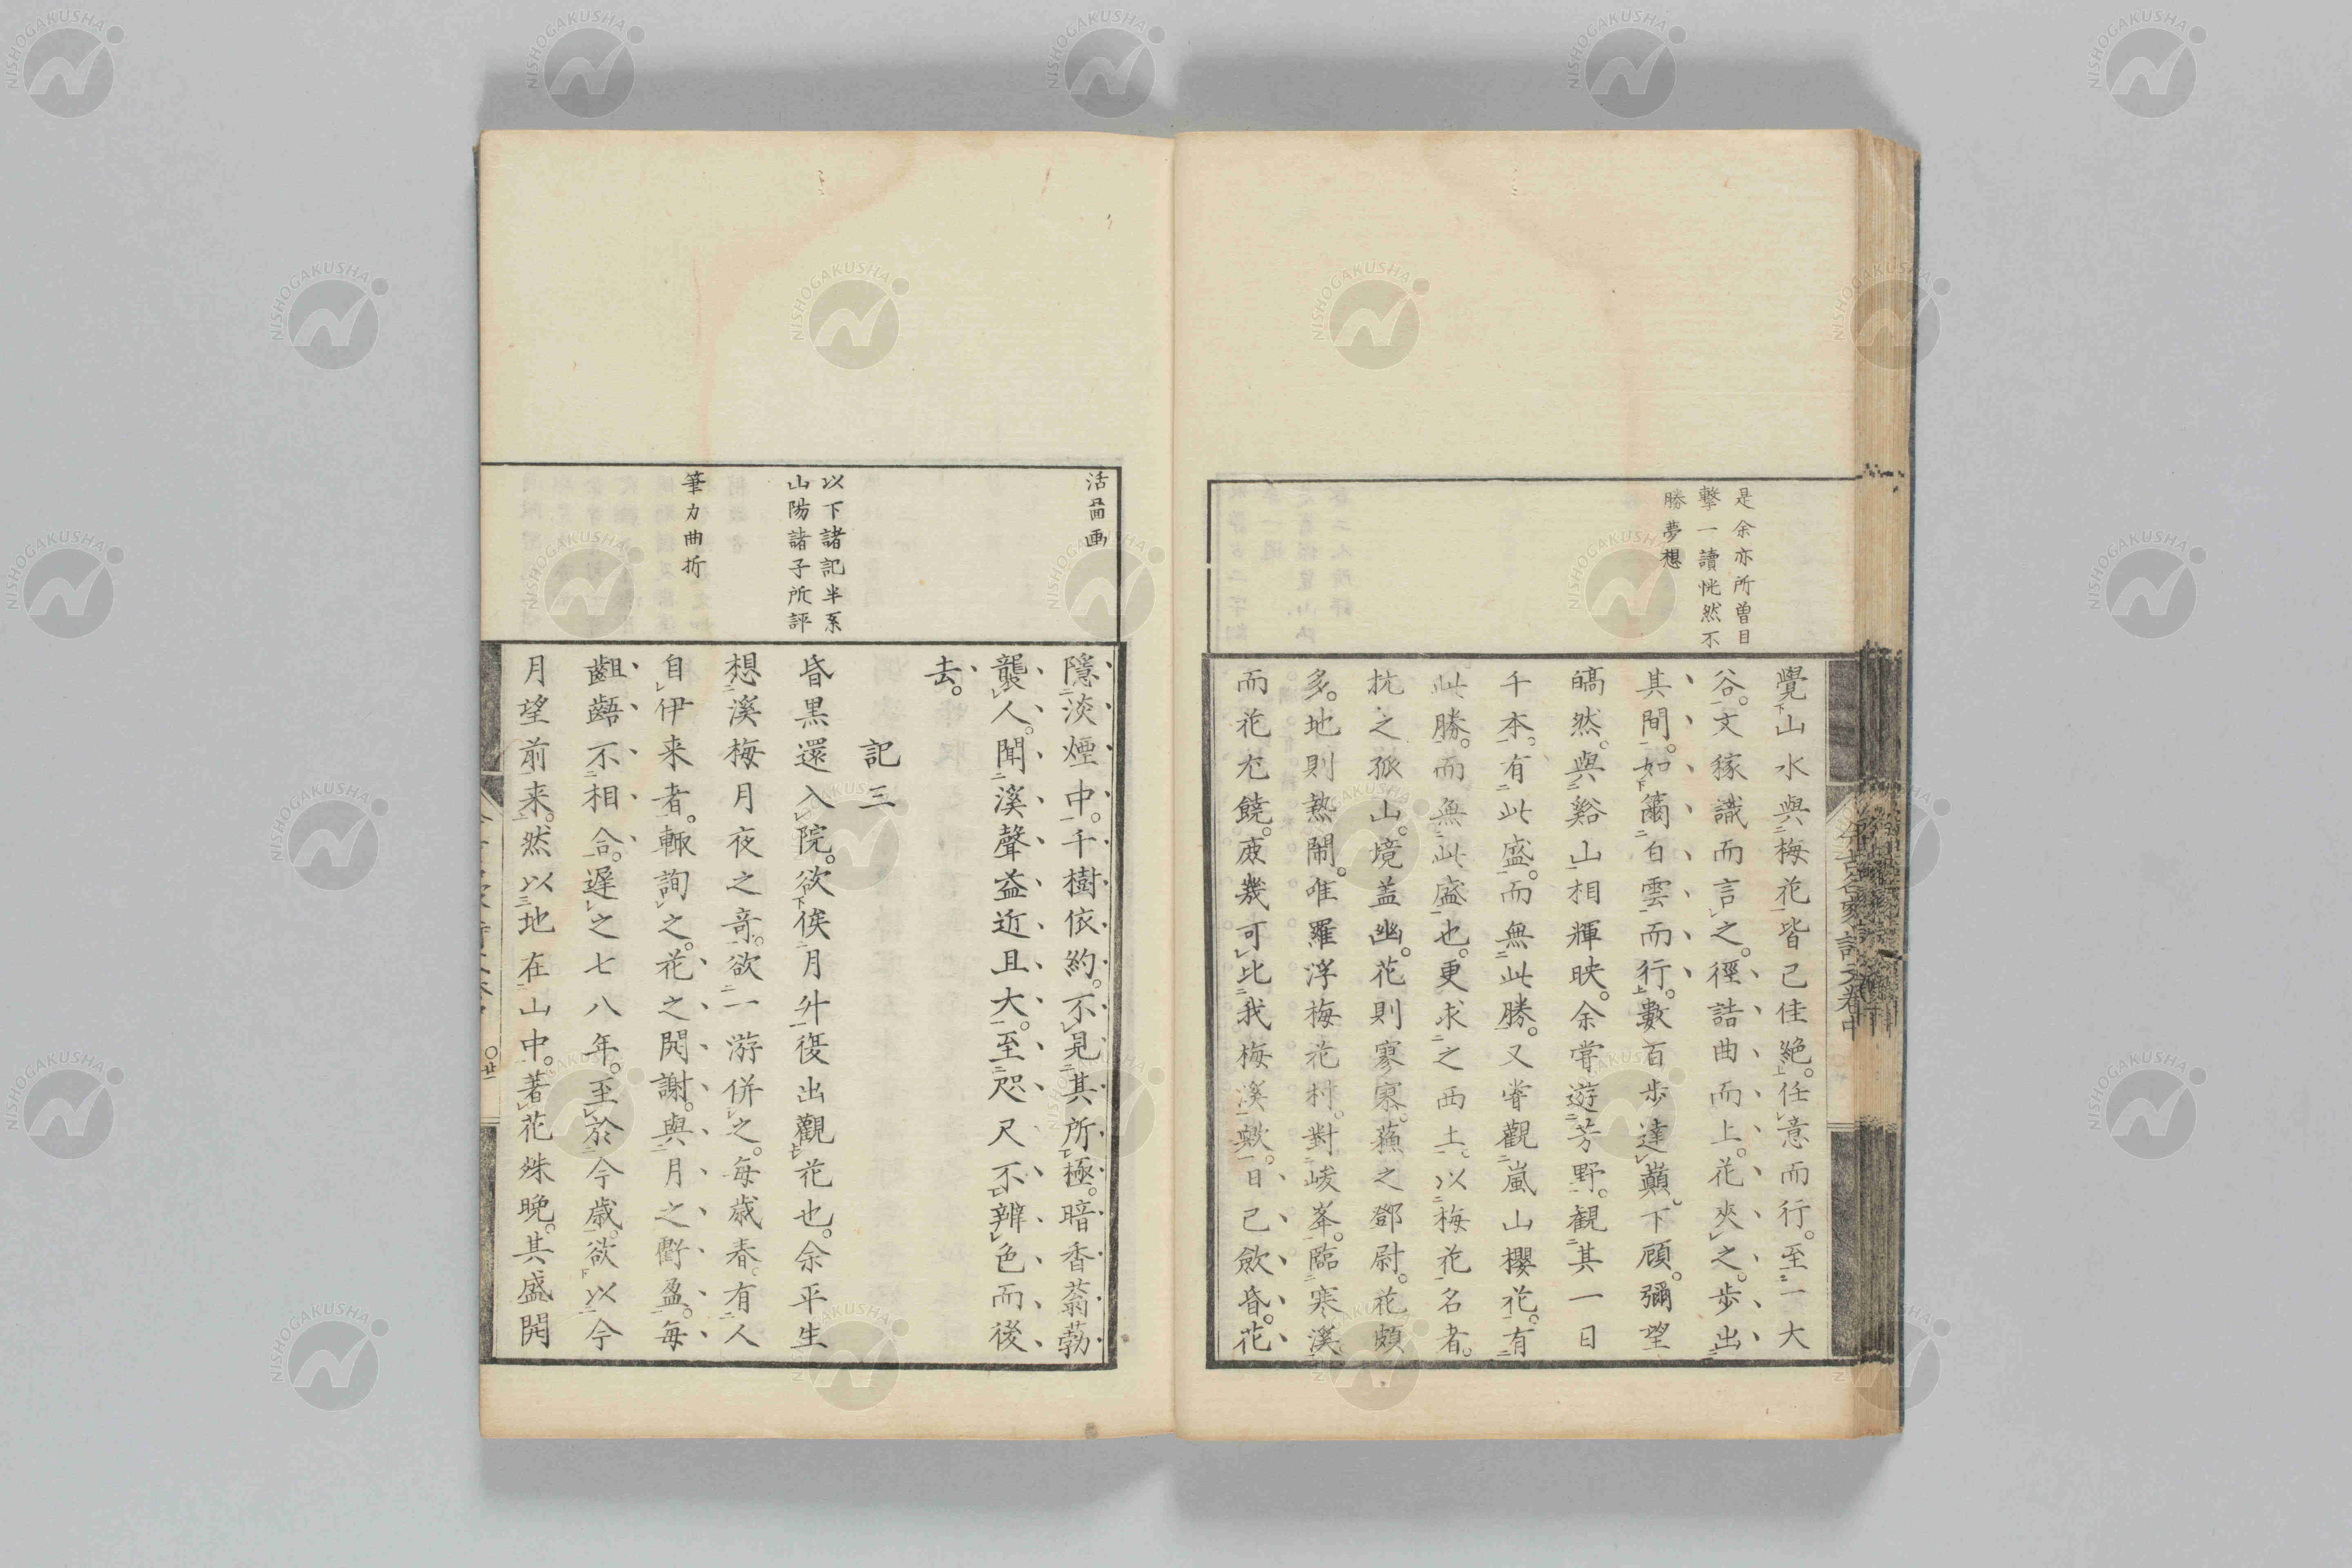 是余亦所曽目
擊一讀恍然不
勝夢想
覺山水與梅花皆已佳絶。任意而行。至一大
谷。文稼識而言之。徑詰曲而上。花夾之。歩出
其間。如籋白雲而行。數百歩達巔。下顧。彌望
皜然。與谿山相輝映。余甞遊芳野。観其一日
千本。有此盛。而無此勝。又甞觀嵐山櫻花。有
此勝。而無此盛也。更求之西土。以梅花名者。
抗之孤山。境盖幽。花則寥寥。蘓之鄧尉。花頗
多。地則熱鬧。唯羅浮梅花村。對峻峯。臨寒溪
而花尤饒。庻幾可比我梅溪歟。日已歛昏。花
今古名家記文卷中
活畱画
以下諸記半系
山陽諸子所評
筆力曲折
隱淡煙中。千樹依約。不見其所極。暗香蓊勃
襲人。聞溪聲益近且大。至咫尺不辨色而後
去。
記三
昏黒還入院。欲俟月升復出觀花也。余平生
想溪梅月夜之竒。欲一游併之。毎歳春。有人
自伊来者。輙詢之。花之開謝。與月之虧盈。毎
齟齬不相合。遅之七八年。至於今歳。欲以今
月望前来。然以地在山中。著花殊晩。其盛開
〇廿一
NISHOGAKUSHA